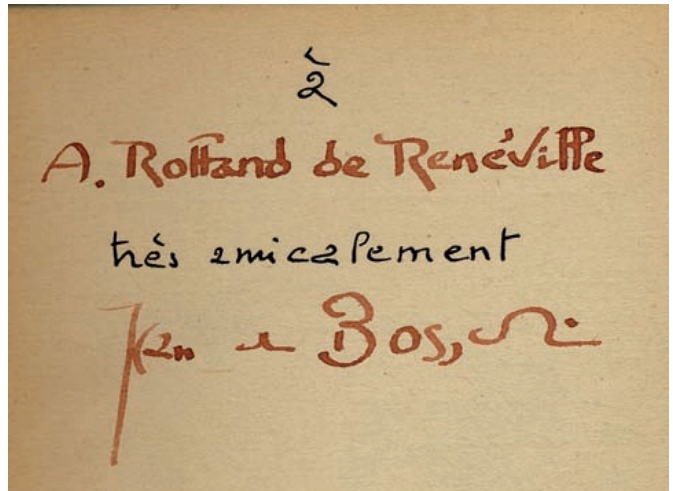 à
A. Rolland de Renéville
très amicalement
Jean de